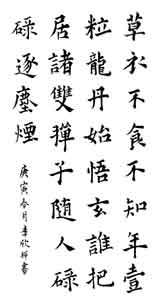 草衣不食不知年壹
粒龍丹始悟玄誰把
居諸雙彈子隨人碌
碌逐塵煙
庚寅月李欣書